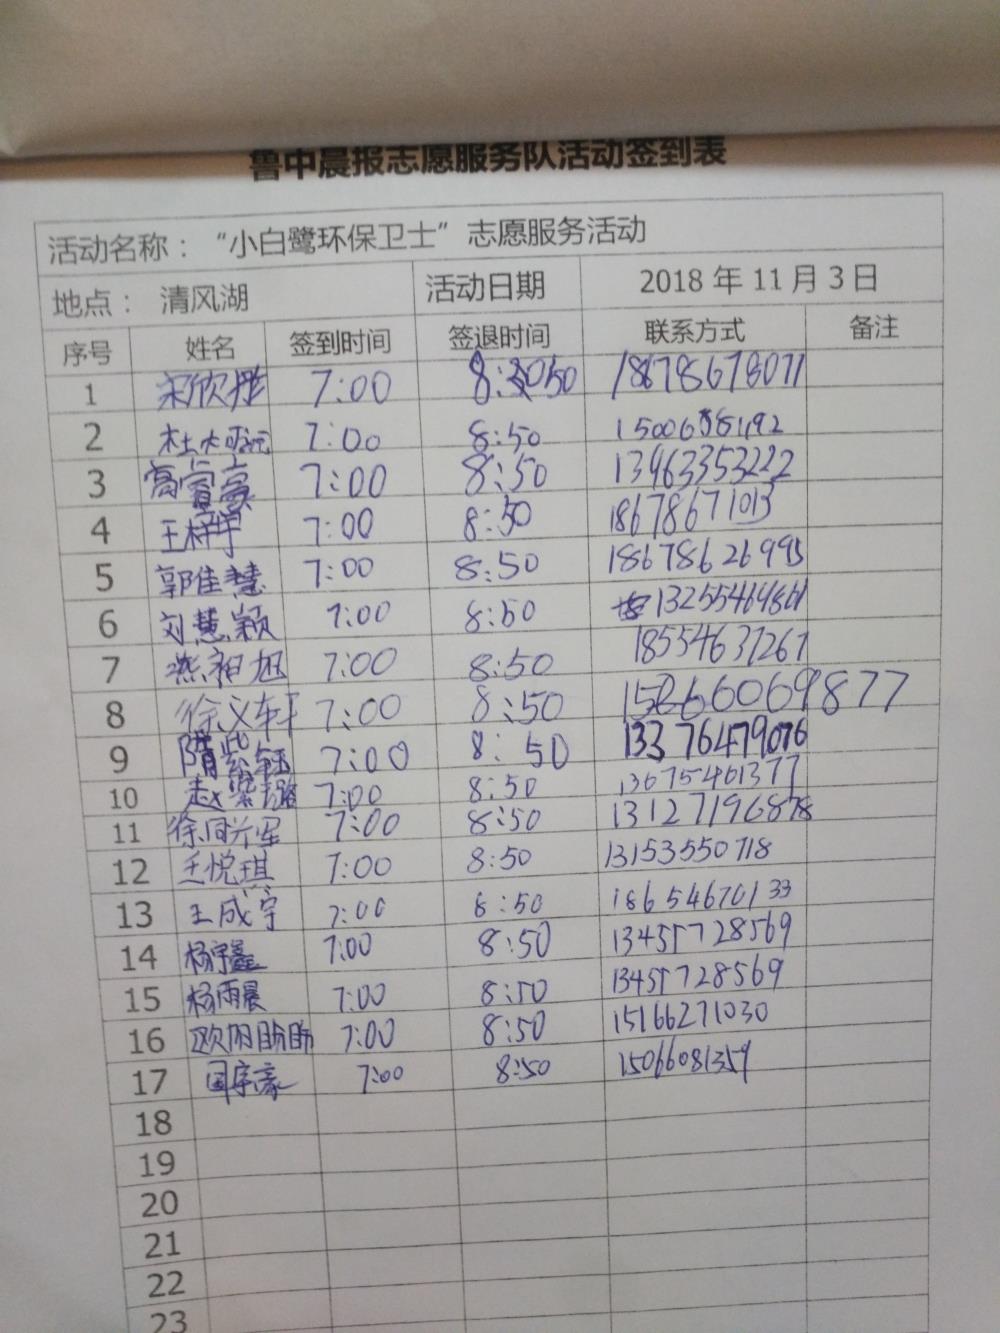 鲁中晨报志愿服务队活动签到表
活动名称：“小白鹭环保卫士”志愿服务活动
地点： 清风湖 活动日期 2018 年 11 月 3 日
序号 姓名 签到时间 签退时间 联系方式 备注
1 宋欣 7:00 8:50 18678678071
2 杜大 7:00 8:50
3 高睿豪 7:00 8:50 13963353222
4 王梓宇 7:00 8:50 18678671013
5 郭佳慧 7:00 8:50 18678626995
6 刘慧颖 7:00 8:50 13255469861
7 燕祖旭 7:00 8:50 18554637267
8 徐义轩 7:00 8:50 15266069877
9 隋紫钰 7:00 8:50 13376479076
10 赵紫璐 7:00 8:50 13675461377
11 7:00 8:50 13127196878
12 王悦琪 7:00 8:50 13153550718
13 王成宇 7:00 8:50 18654670133
14 杨宇鑫 7:00 8:50 13455728569
15 杨雨晨 7:00 8:50 13455728569
16 欧阳盼盼 7:00 8:50 15166271030
17 国宇豪 7:00 8:50 15066081359
18
19
20
21
22
23